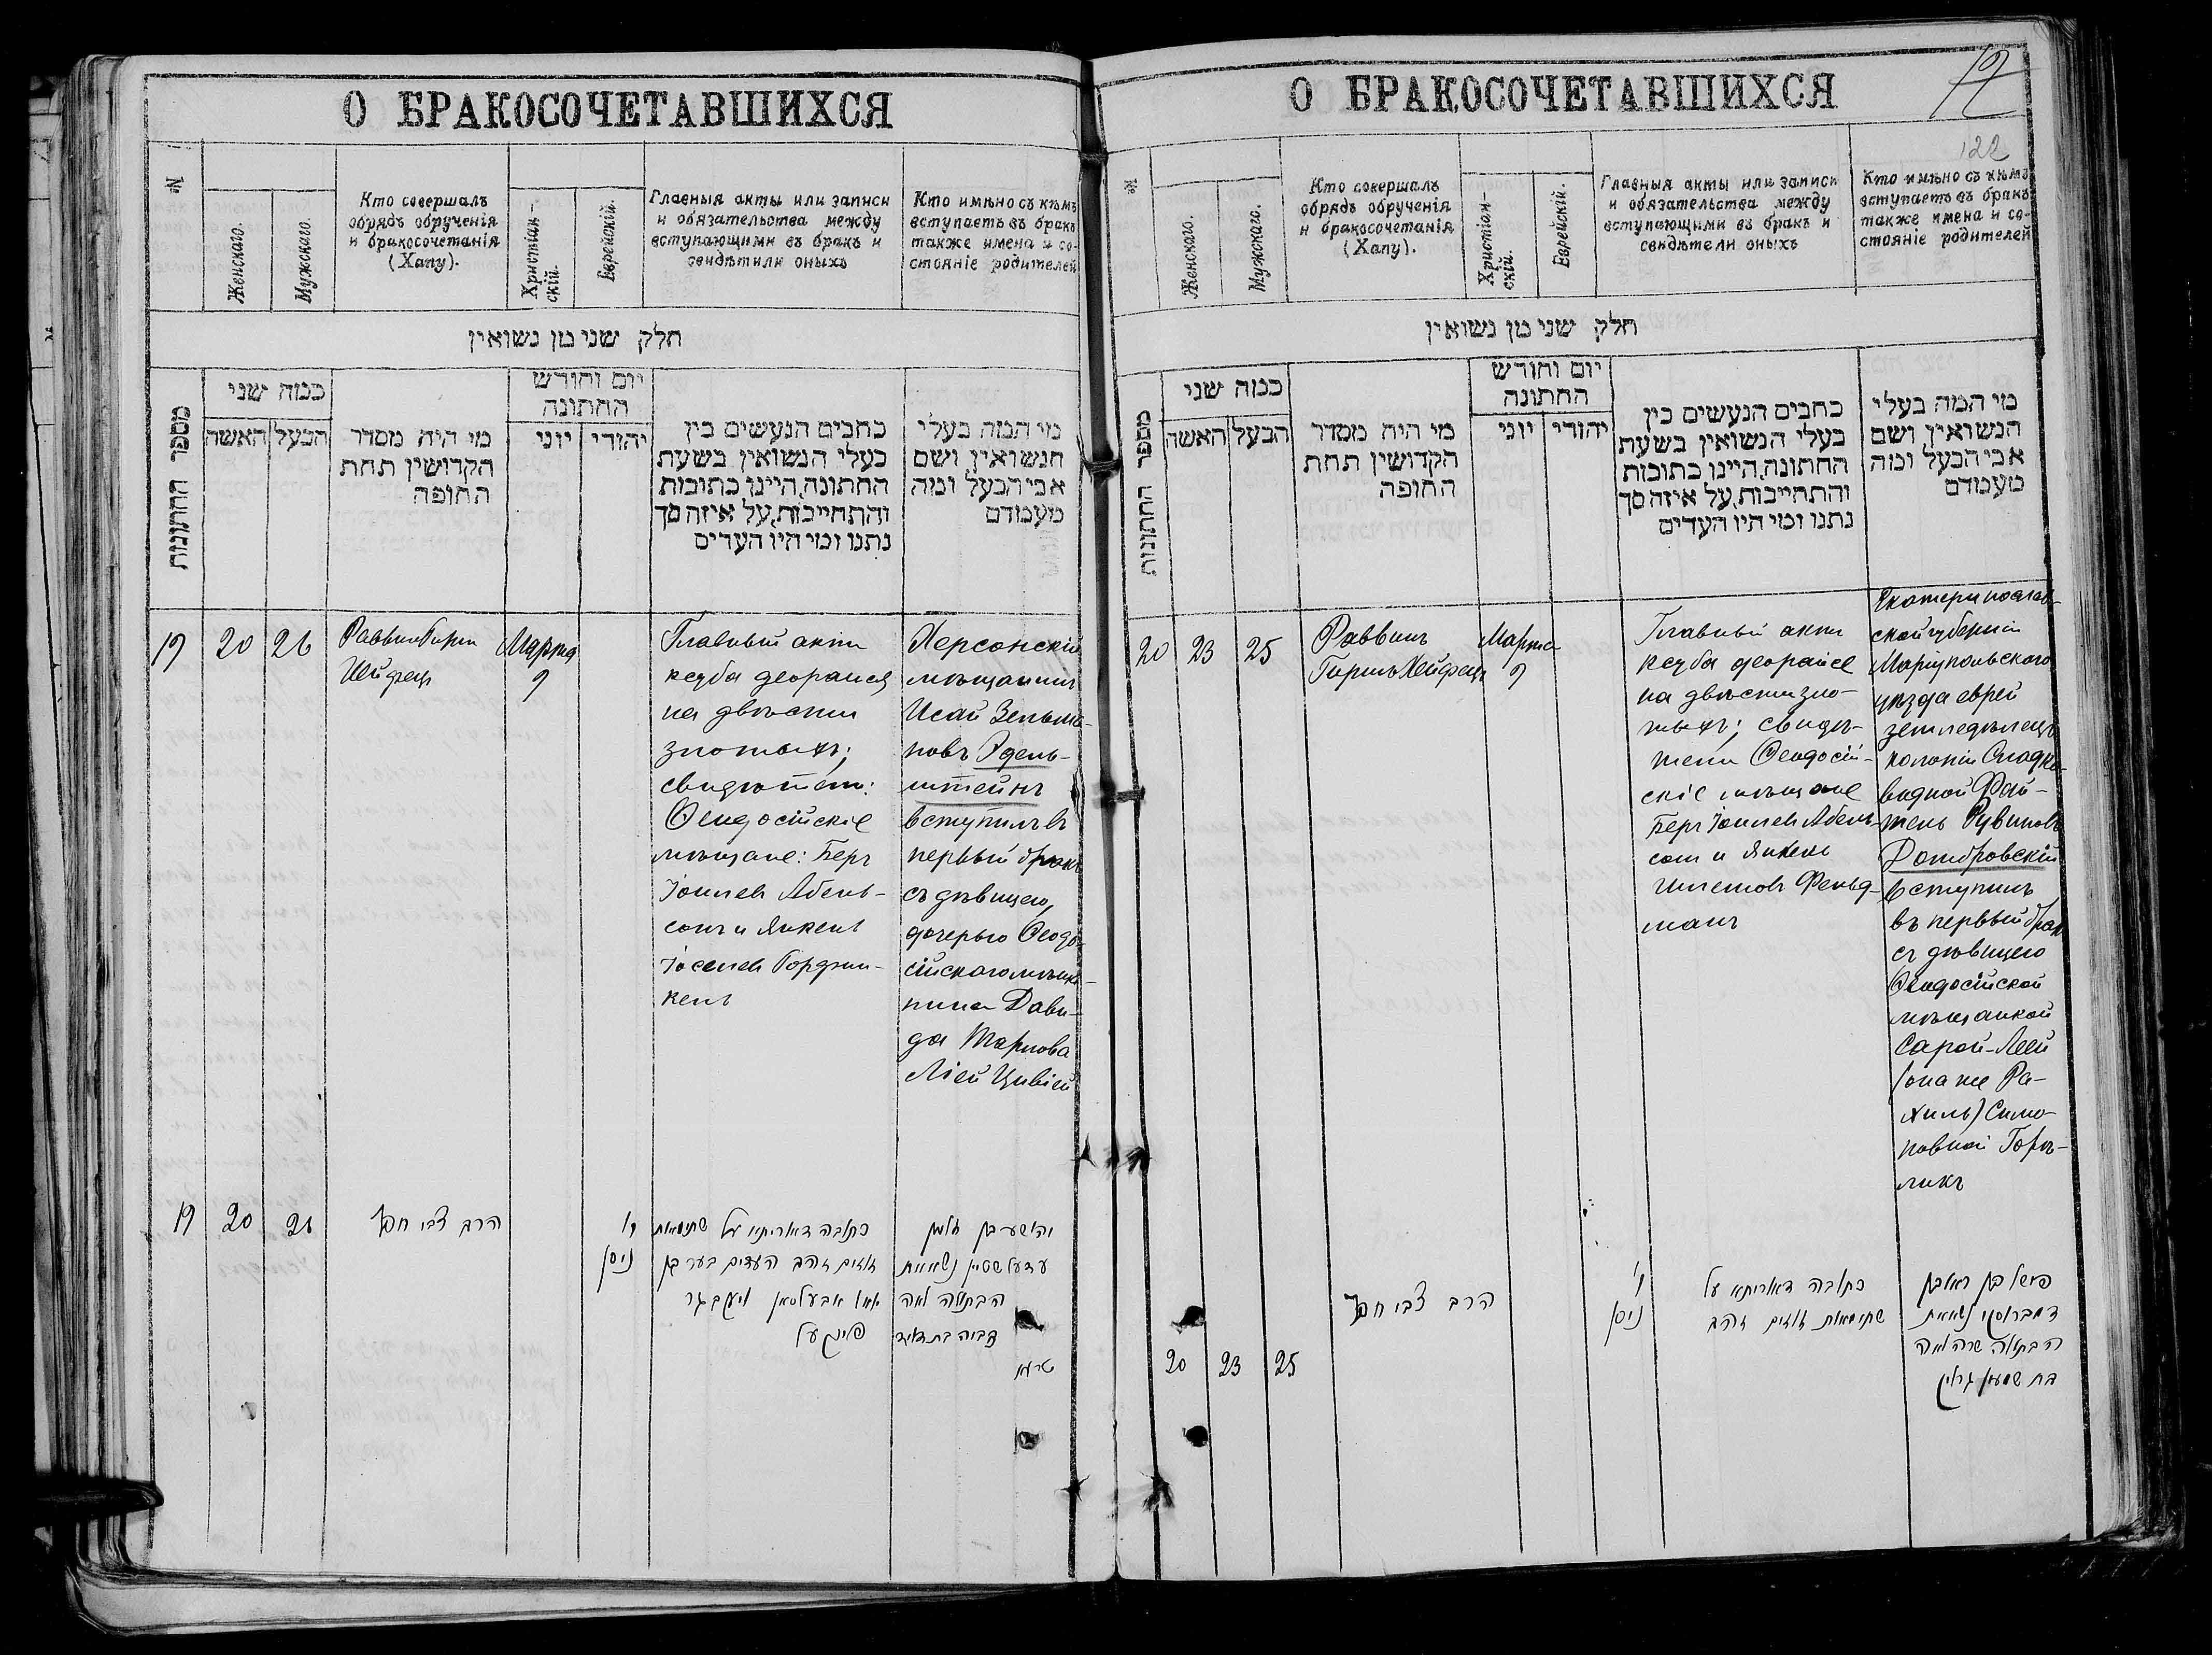 О БРАКОСОЧЕТАВШИХСЯ
№
Женскаго.
Мужскаго.
Кто совершалъ
обрядъ обрученія
и бракосочетанія
(Хапу).
Христіан–
скій.
Еврейскій.
Главныя акты или записи
и обязательства между
вступающими въ бракъ и
свидѣтили оныхъ
Кто имѣно съ кѣмъ
вступаетъ въ бракъ
также имена и со-
стояніе родителей
חלק שני מן נשואין
מספר החתונות
כמה שני
האשה
הבעל
מי היה מסדר
הקדושין תחת
החופה
יום וחודש
החתונה
יוני
יהודי
כתבים הנעשים בין
בעלי הנשואין בשעת
החתונה,היינו כתובות
והתחייבות,על איזה סך
נתנו ומי היו העדים
מי המה בעלי
הנשואין ושם
אבי הבעל ומה
מעמדם
19
20
26
Раввинъ Гирш
Хейфецъ
Марта
9
Главный актъ
ксуба деорайся
на двѣсти
злотыхъ;
свидѣтели:
Ѳеодосійскіе
мѣщане: Беръ
Іоилевъ Абель-
сонъ и Янкель
Іоселевъ
Херсонскій
мѣщанинъ
Исай Зельма-
новъ Эдель-
штейнъ
вступилъ въ
первый бракъ
съ дѣвицею,
дочерью Ѳеодо-
сійскаго мѣща-
нина Дави-
да Тарнова
Ліей Цивіей
19
20
26
הרב צבי חפץ
ו'
ניסן
כתובה דאוריתא על שתי מאות
זוזים זהב העדים בער בן
יואל אבעלסאן
בן זלמן
עדעלשטיין נשא את
הבתולה לאה
צביה בת דוד
О БРАКОСОЧЕТАВШИХСЯ
12
122
№
Женскаго.
Мужскаго.
Кто совершалъ
обрядъ обрученія
и бракосочетанія
(Хапу).
Христіан–
скій.
Еврейскій.
Главныя акты или записи
и обязательства между
вступающими въ бракъ и
свидѣтели оныхъ
Кто имѣно съ кѣмъ
вступаетъ въ бракъ
также имена и со-
стояніе родителей
חלק שני מן נשואין
מספר החתונות
כמה שני
האשה
הבעל
מי היה מסדר
הקדושין תחת
החופה
יום וחודש
החתונה
יוני
יהודי
כתבים הנעשים בין
בעלי הנשואין בשעת
החתונה,היינו כתובות
והתחייבות,על איזה סך
נתנו ומי היו העדים
מי המה בעלי
הנשואין ושם
אבי הבעל ומה
מעמדם
20
23
25
Раввинъ
Гиршъ Хейфецъ
Марта
9
Главный актъ
ксуба деорайсе
на двѣсти зло-
тыхъ; свидѣ-
тели Ѳеодосій-
скіе мѣщане
Беръ Іоилевъ Абель-
сонъ и Янкель
Фельд-
манъ
Екатеринослав-
ской губерніи
Маріупольскаго
уѣзда еврей
земледѣлецъ
колоніи Сладко-
водной Фай-
тель Рувиновъ
Домбровскій
вступилъ
въ первый бракъ
съ дѣвицею
Ѳеодосійской
мѣщанкой
Сарой-Леей
(она же Ра-
хиль) Симо-
новной Горъ-
ликъ
20
23
25
הרב צבי חפץ
ו'
ניסן
כתובה דאוריתא על
שתי מאות זוזים זהב
בן ראובן
דמבראסקי נשא את
הבתולה שרה לאה
בת שמעון